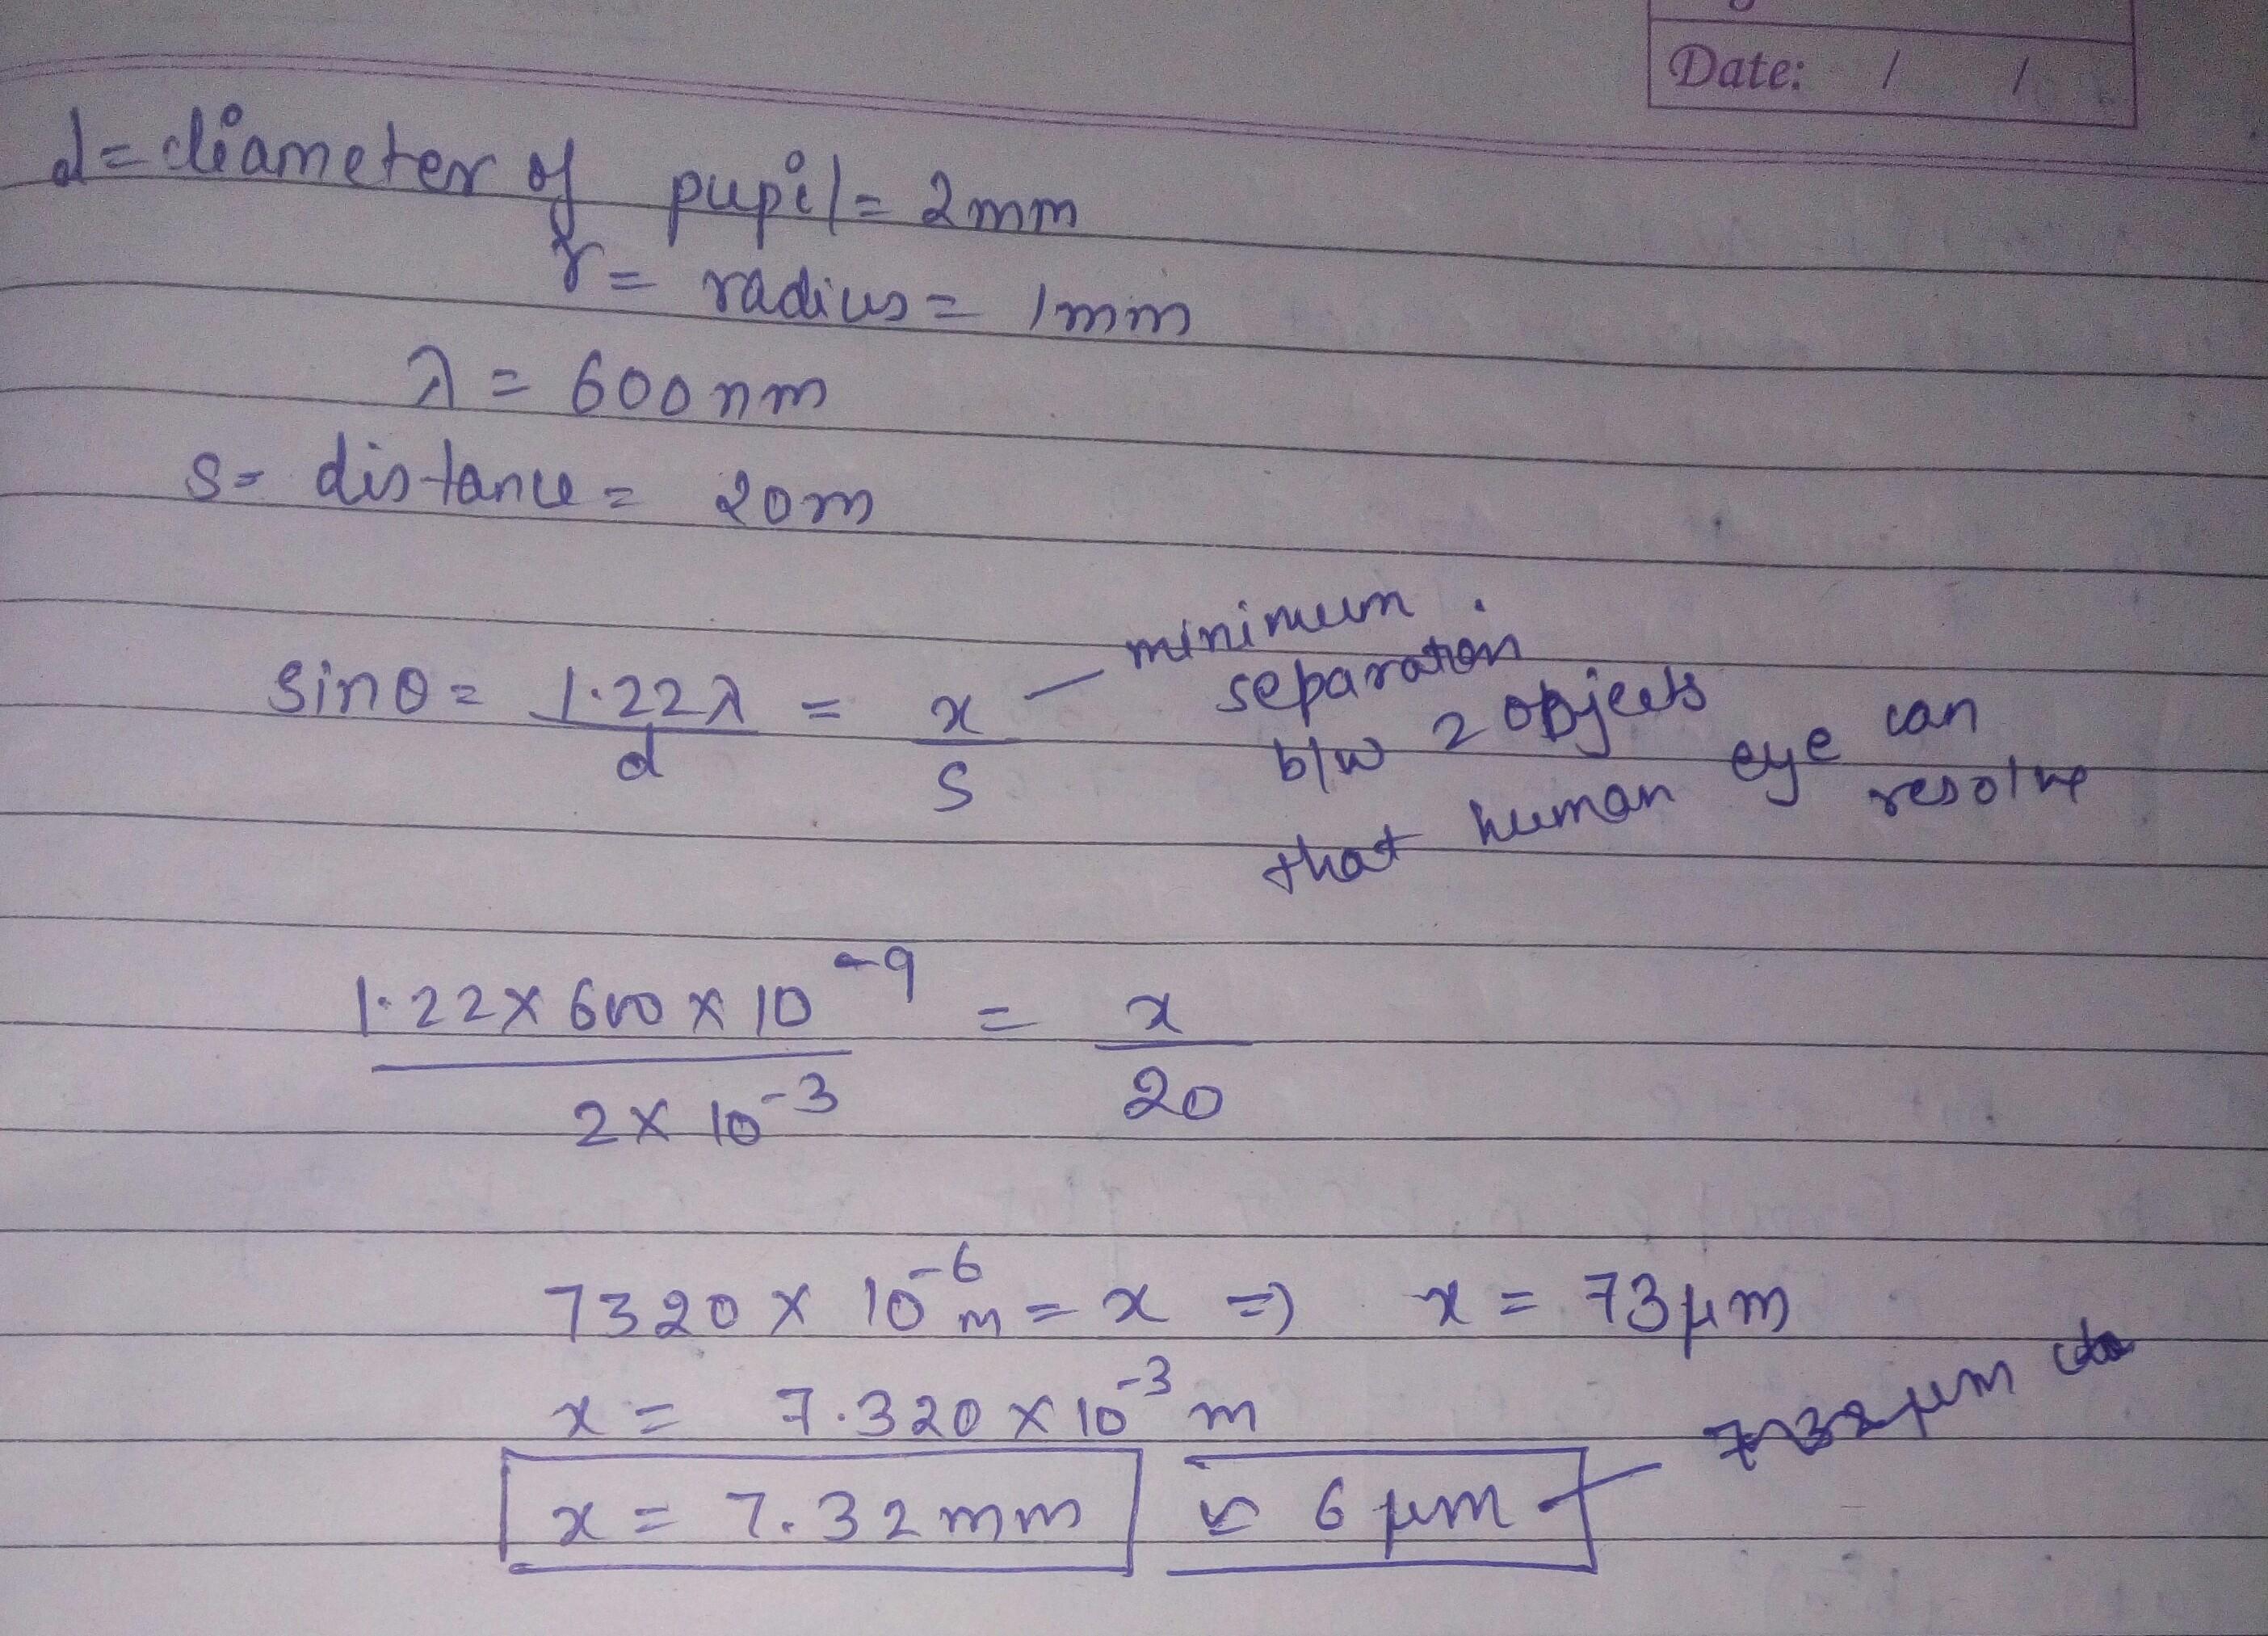 Date: / /
d= diameter of pupil = 2mm
r = radius = 1mm
λ = 600nm
s = distance = 20m
sinθ = 1.22λ/d = x/s — minimum separation b/w 2 objects that human eye can resolve
1.22 x 600 x 10^-9 / 2 x 10^-3 = x / 20
7320 x 10^-6 m = x => x = 73μm
x = 7.320 x 10^-3 m
x = 7.32mm
6 μm